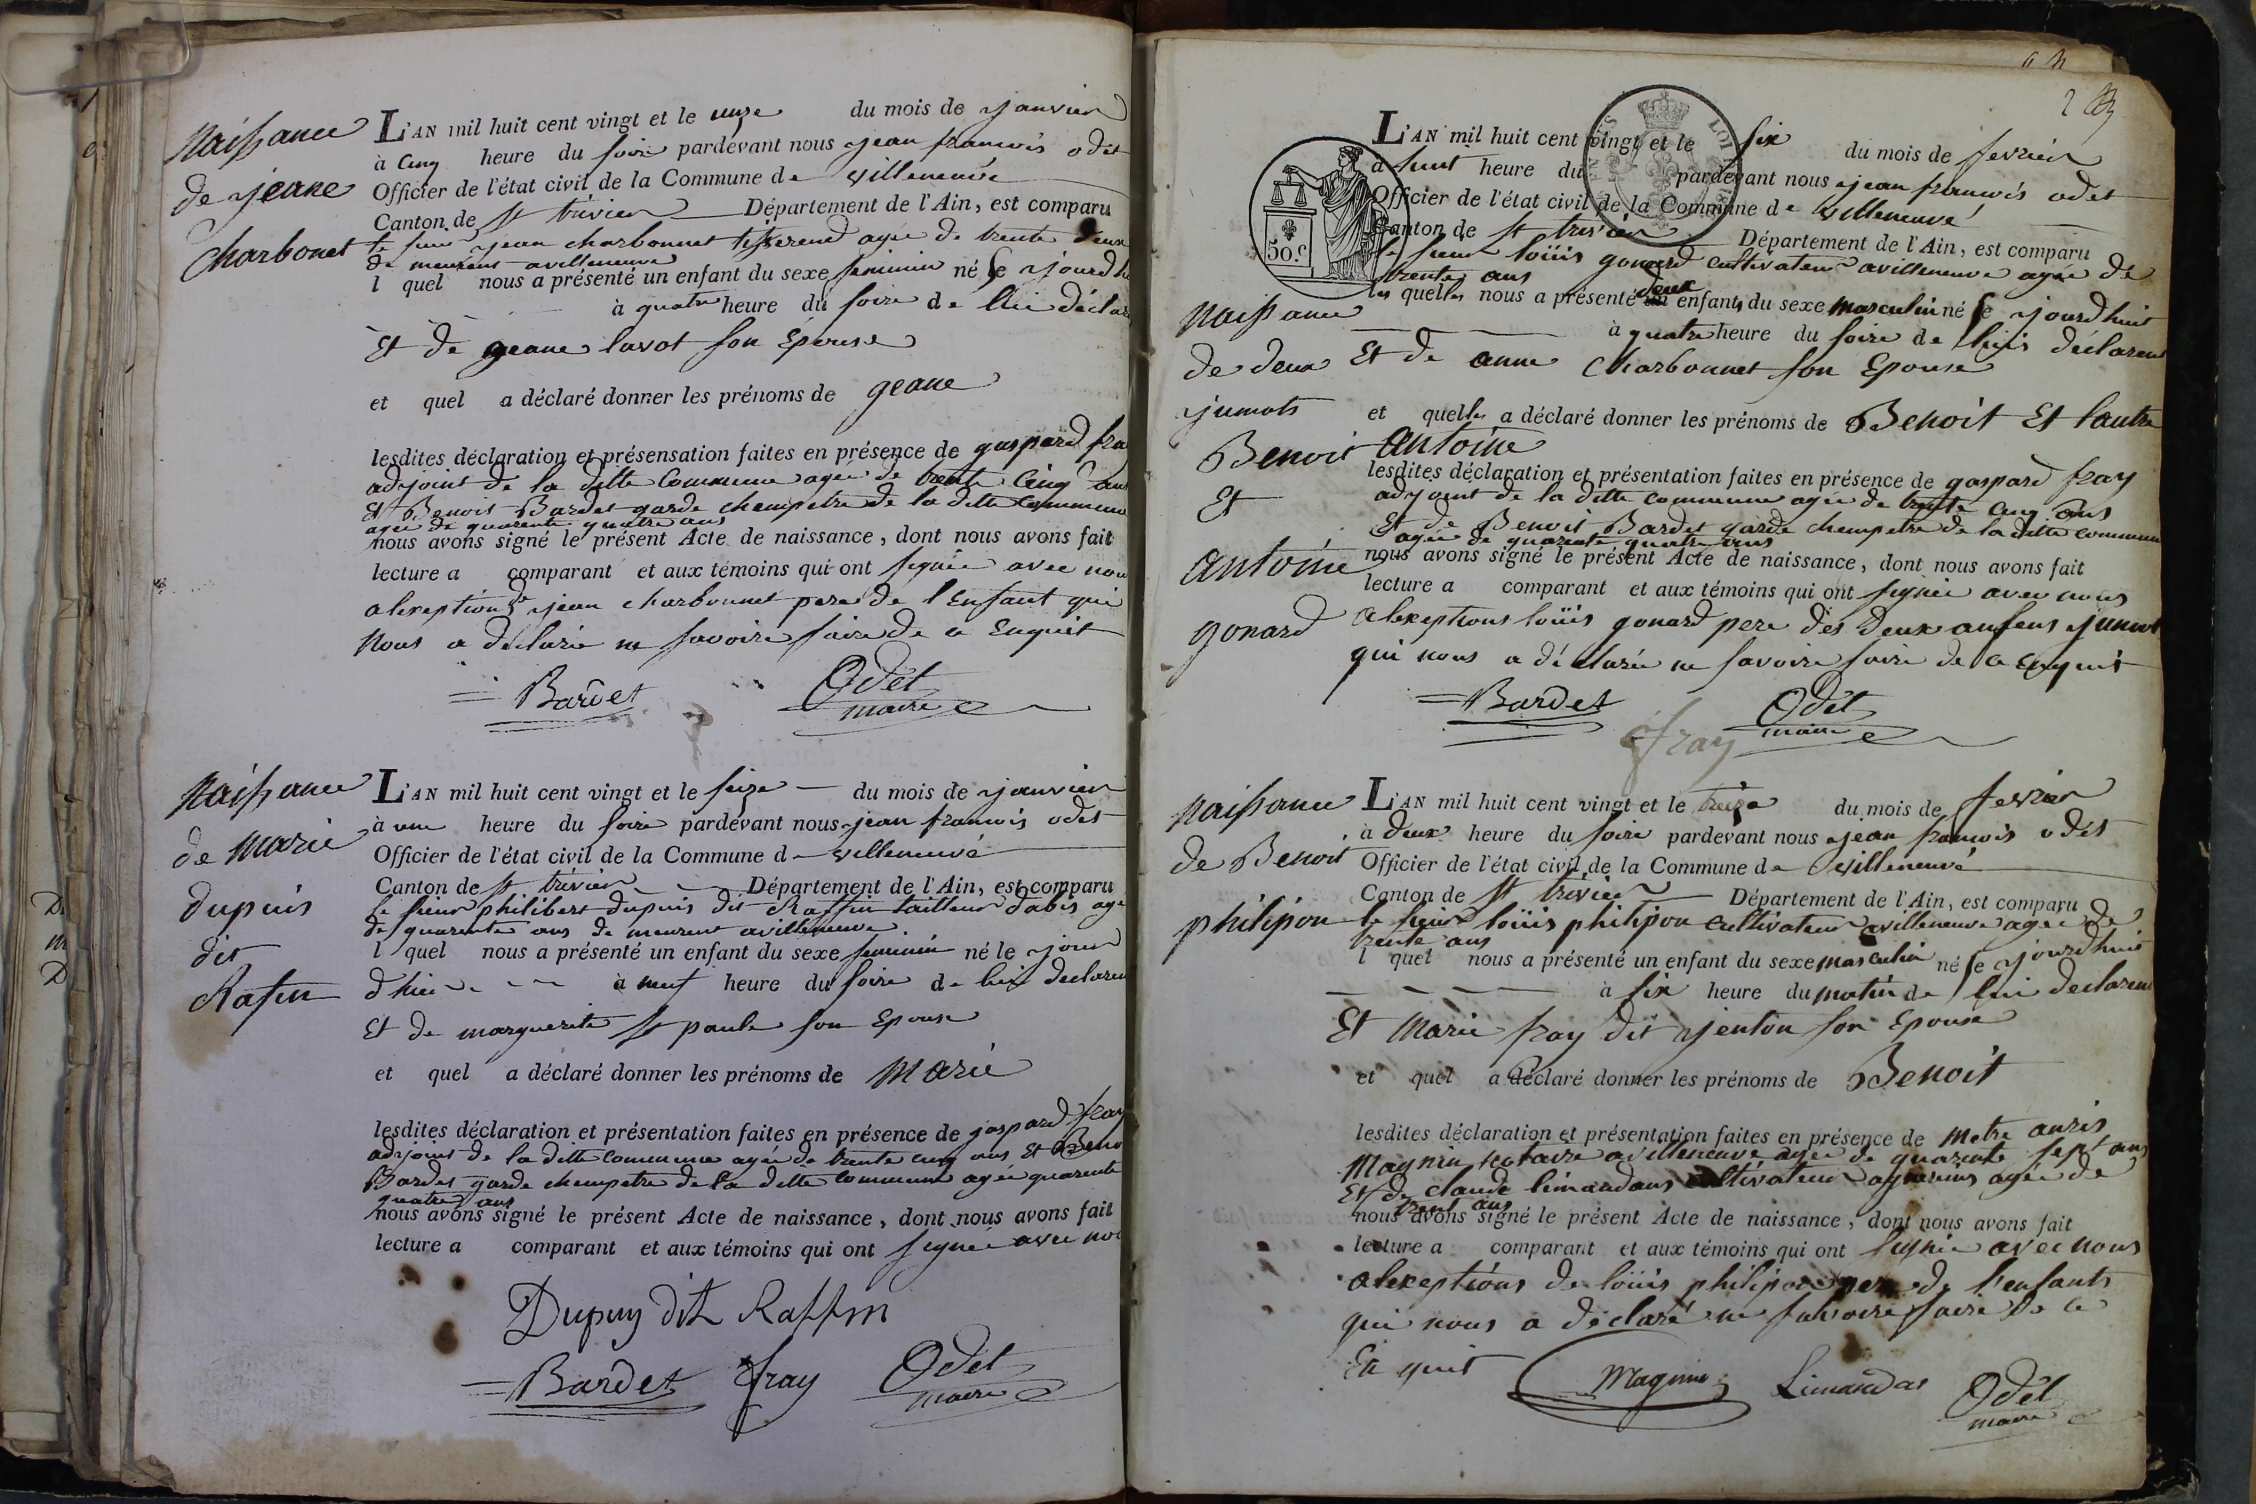 Naissance
de jeane
Charbonet
L'AN mil huit cent vingt et le unze du mois de janvier
à cinq heure du soire pardevant nous jean francois odet
Officier de l'état civil de la Commune de villeneuve
Canton de St trivier Département de l'Ain, est comparu
le sieur jean charbonnet tisserend agée de trente deux
de meurent avilleneuve
l quel nous a présenté un enfant du sexe feminin né le jourd
à quatre heure du soire de lui déclar
Et de geane lavot son Epouse
et quel a déclaré donner les prénoms de geane
lesdites déclaration et présensation faites en présence de gaspard fra
adjoint de la ditte Commune agée de trente Cinq ans
et Benoit Bardet garde chempetre de la ditte commune
agée de quarente quatre ans
nous avons signé le présent Acte de naissance, dont nous avons fait
lecture a comparant et aux témoins qui ont signée avec nou
alexeption de jean charbonnet pere de l'Enfant qui
Nous a déclarée ne savoire faire de ce Enquit
Bardet Odet
maire
Naissance
de Marie
dupuis
dit
Rafin
L'AN mil huit cent vingt et le seize du mois de janvier
à une heure du soire pardevant nous jean francois odet
Officier de l'état civil de la Commune de villeneuve
Canton de St trivier Département de l'Ain, est comparu
le sieur philibert dupuis dit Raffin tailleur dabis age
de quarente ans de meurent avilleneuve
l quel nous a présenté un enfant du sexe feminin né le jour
d'hier à neuf heure du soire de lui declaren
Et de marguerite St paule son Epouse
et quel a déclaré donner les prénoms de Marie
lesdites déclaration et présentation faites en présence de gaspard fray
adjoint de la ditte commune agée de trente cinq ans Et Beno
Bardet garde chempetre de la ditte commune agée quarente
quatre ans
nous avons signé le présent Acte de naissance, dont nous avons fait
lecture a comparant et aux témoins qui ont signée avec nou
Dupuy dit Raffin
Bardet fray Odet
maire
2
50.c
Naissance
de deux
jumots
Benoit
Et
antoine
gonard
L'AN mil huit cent vingt et le six du mois de fevrier
à huit heure du pardevant nous jean francois odet
Officier de l'état civil de la Commune de villeneuve
Canton de St trivier Département de l'Ain, est comparu
le sieur loüis gonard cultivateur avilleneuve agée de
trente ans
les quelles nous a présenté deux enfants du sexe masculin né le jourd huit
à quatre heure du soire de luis déclaren
Et de anne Charbonnet son Epouse
et quelles a déclaré donner les prénoms de Benoit Et lautre
antoine
lesdites déclaration et présentation faites en présence de gaspard fray
adjoint de la ditte commune agée de trente cinq ans
Et de Benoit Bardet garde chempetre de la ditte commune
agée de quarente quatre ans
nous avons signé le présent Acte de naissance, dont nous avons fait
lecture a comparant et aux témoins qui ont signée avec nous
alexeptions loüis gonard pere des deux anfens jumot
qui nous a déclarée ne savoire faire de ce enquit
Bardet Odet
fray maire
Naissance
de Benoit
philipon
L'AN mil huit cent vingt et le treize du mois de fevrier
à deux heure du soire pardevant nous jean francois odet
Officier de l'état civil de la Commune de villeneuve
Canton de St trivier Département de l'Ain, est comparu
le sieur loüis philipon cultivateur avilleneuve agée de
trente ans
l quel nous a présenté un enfant du sexe masculin né le jourd huit
à six heure du matin de lui declaren
Et Marie fray dit jenton son Epouse
et quel a déclaré donner les prénoms de Benoit
lesdites déclaration et présentation faites en présence de Metre
Magnin notaire avilleneuve agée de quarente sept ans
Et de claude limandaus cultivateur agée de
trent ans
nous avons signé le présent Acte de naissance, dont nous avons fait
lecture a comparant et aux témoins qui ont signée avec nous
alexeptions de loüis philipon pere de l'enfants
qui nous a déclaré ne savoire faire de ce
En quit
Magnin Limandas Odet
maire